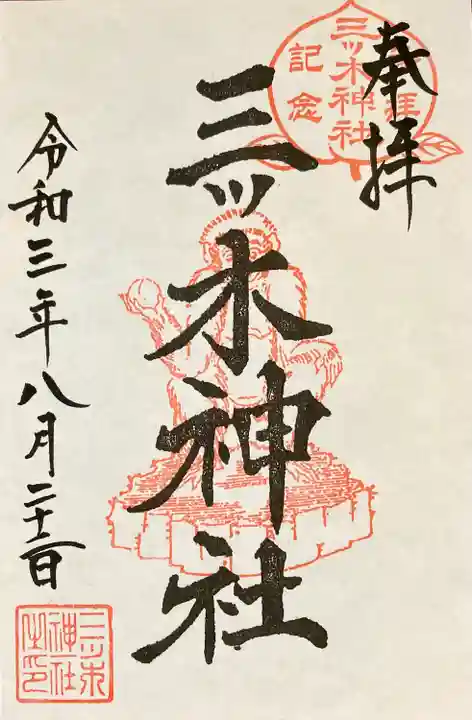 奉拝
三ッ木神社
記念
三ッ木神社
令和三年八月二十二日
三ツ木
神社
之印